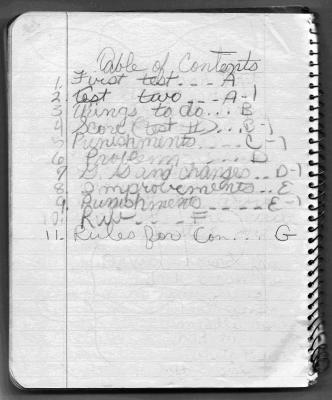 Table of Contents
1. First test... A
2. test two... A-1
3 things to do... B
4 Score (test II)... B-1
5 Punishments..... C-1
6 Problem..... D
7 and changes.. D-1
8. Improvements.. E
9. Punishments..... E-1
10. Rub.... F
11. Rules for Con... G